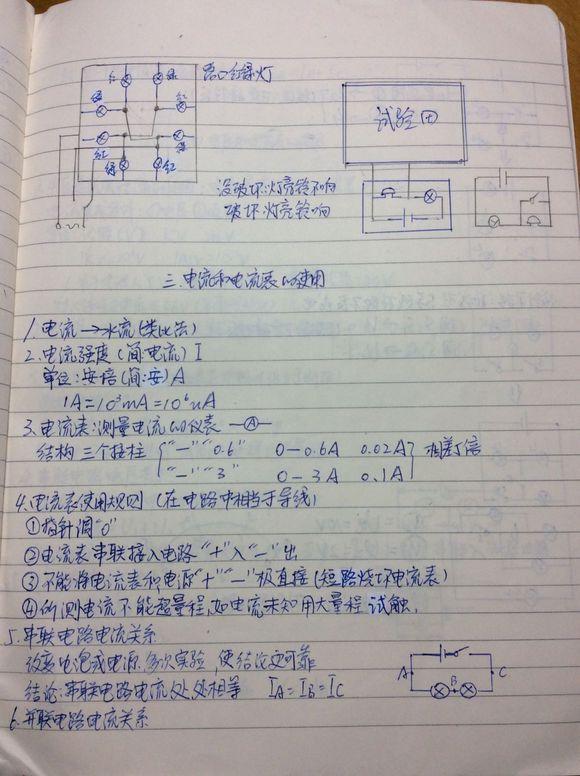 红 绿 路口红绿灯
绿 红
红 绿
绿 红
试验田
没破坏:灯亮铃不响
破坏:灯亮铃响
三.电流和电流表的使用
1.电流→水流(类比法)
2.电流强度(简:电流)I
单位:安培(简:安)A
1A=10³mA=10⁶uA
3.电流表:测量电流的仪表 A
结构 三个接柱 "—" "0.6" 0—0.6A 0.02A 相差5倍
"—" "3" 0—3A 0.1A
4.电流表使用规则(在电路中相当于导线)
①指针调"0"
②电流表串联接入电路"+"入"—"出
③不能将电流表和电源"+""—"极直接(短路烧坏电流表)
④所测电流不能超量程,如电流未知用大量程试触.
5.串联电路电流关系
改变电泡或电源.多次实验,使结论更可靠
结论:串联电路电流处处相等 IA=IB=IC
A B C
6.并联电路电流关系